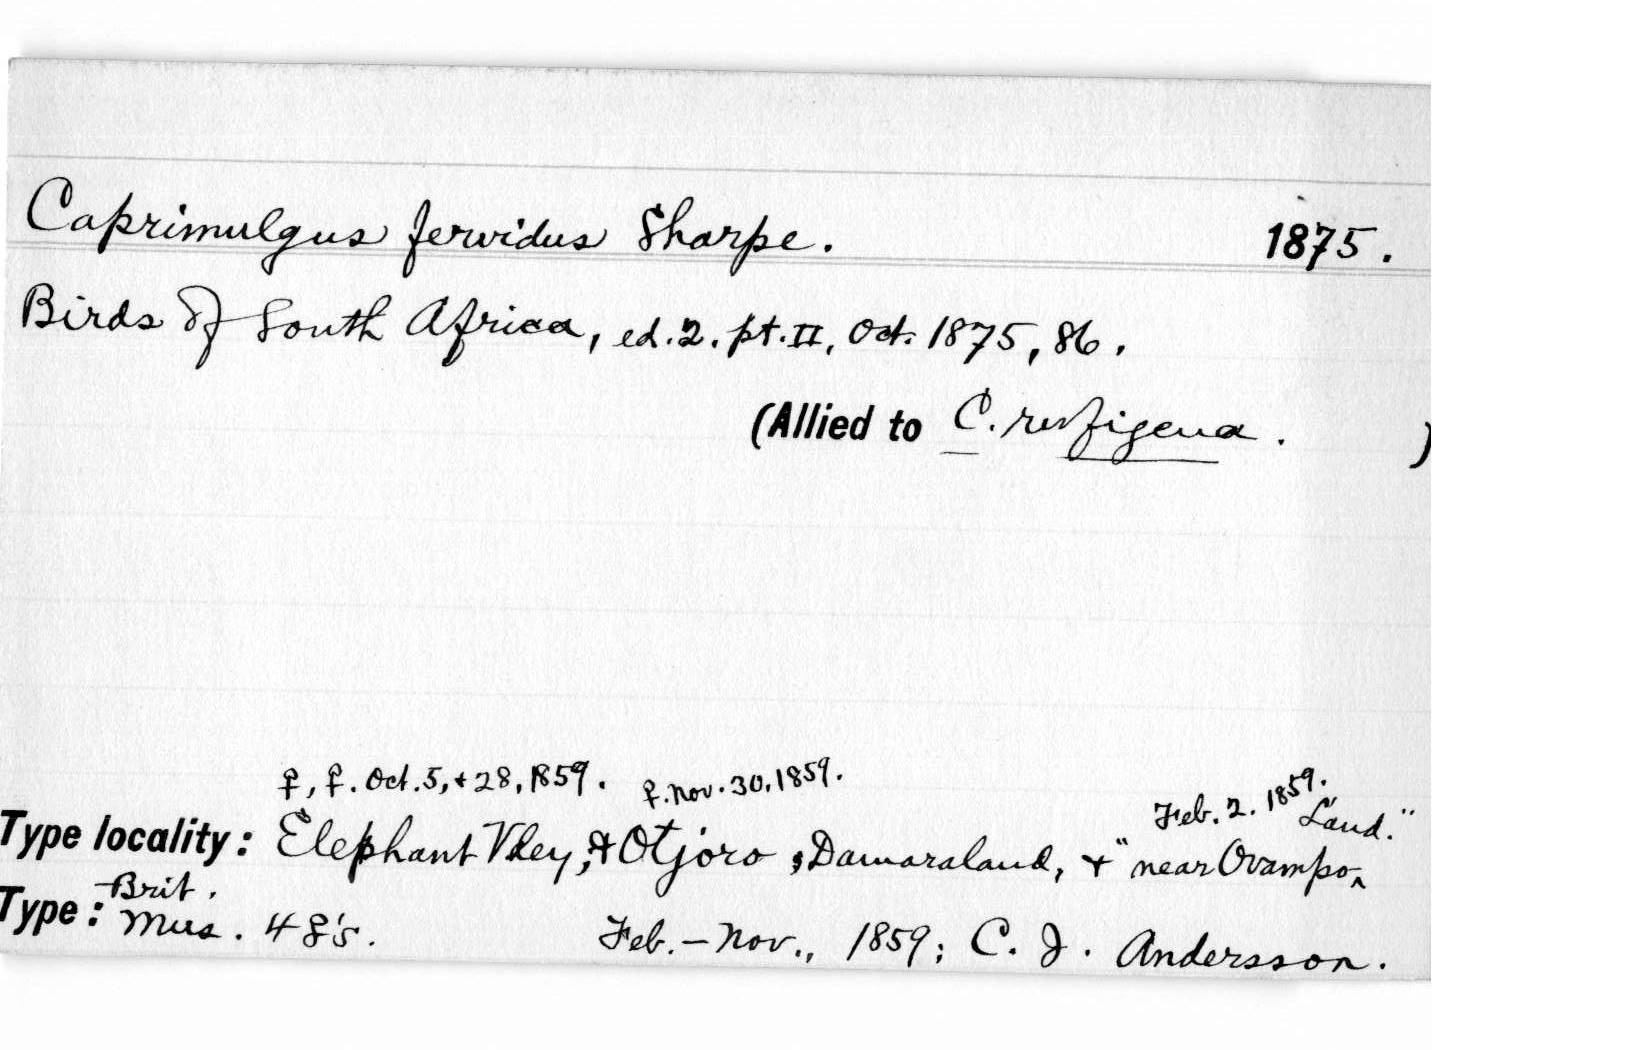 Caprimulgus fervidus Sharpe. 1875.
Birds of South Africa, ed. 2. pt. II, Oct. 1875, 86.
(Allied to C. rufigena. )
♀, ♀. Oct. 5, + 28, 1859. ♀. Nov. 30, 1859. Feb. 2. 1859.
Type locality: Elephant Vley, & Otjoro, Damaraland, + "near Ovampo Land."
Type: Brit. Mus. 4 ♀'s. Feb. – Nov., 1859; C. J. Andersson.